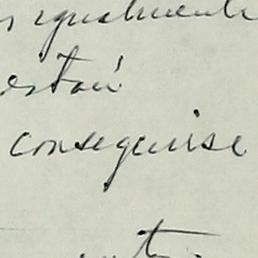 igualmente
están
conseguirse